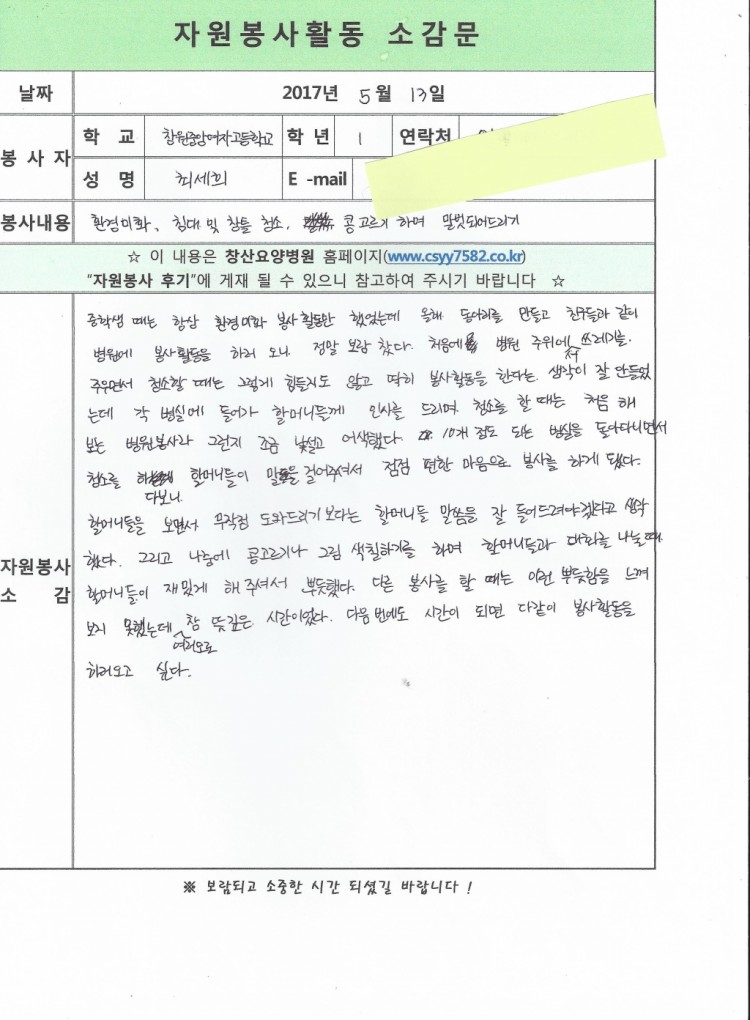 자원봉사활동 소감문
날짜 2017년 5월 13일
봉사자 학 교 창원중앙여자고등학교 학 년 1 연락처
성 명 최세희 E-mail
봉사내용 환경미화, 침대 및 창틀 청소, 콩고르기 하며 말벗되어드리기
☆ 이 내용은 창산요양병원 홈페이지(www.csyy7582.co.kr)
"자원봉사 후기"에 게재 될 수 있으니 참고하여 주시기 바랍니다 ☆
중학생 때는 항상 환경미화 봉사활동만 했었는데 올해 동아리를 만들고 친구들과 같이
병원에 봉사활동을 하러 오니 정말 보람 찼다. 처음에 병원 주위에서 쓰레기를
주우면서 청소할 때는 그렇게 힘들지도 않고 딱히 봉사활동을 한다는 생각이 잘 안들었
는데 각 병실에 들어가 할머니들께 인사를 드리며 청소를 할 때는 처음 해
보는 병원봉사라 그런지 조금 낯설고 어색했다. 10개 정도 되는 병실을 돌아다니면서
청소를 하다보니 할머니들이 말을 걸어주셔서 점점 편한 마음으로 봉사를 하게 됐다.
할머니들을 보면서 무작정 도와드리기 보다는 할머니들 말씀을 잘 들어드려야겠다고 생각
했다. 그리고 나중에 콩고르기나 그림 색칠하기를 하며 할머니들과 대화를 나눌때
할머니들이 재밌게 해 주셔서 뿌듯했다. 다른 봉사를 할 때는 이런 뿌듯함을 느껴
보지 못했는데 여러모로 참 뜻깊은 시간이었다. 다음 번에도 시간이 되면 다같이 봉사활동을
하러오고 싶다.
자원봉사
소 감
※ 보람되고 소중한 시간 되셨길 바랍니다 !